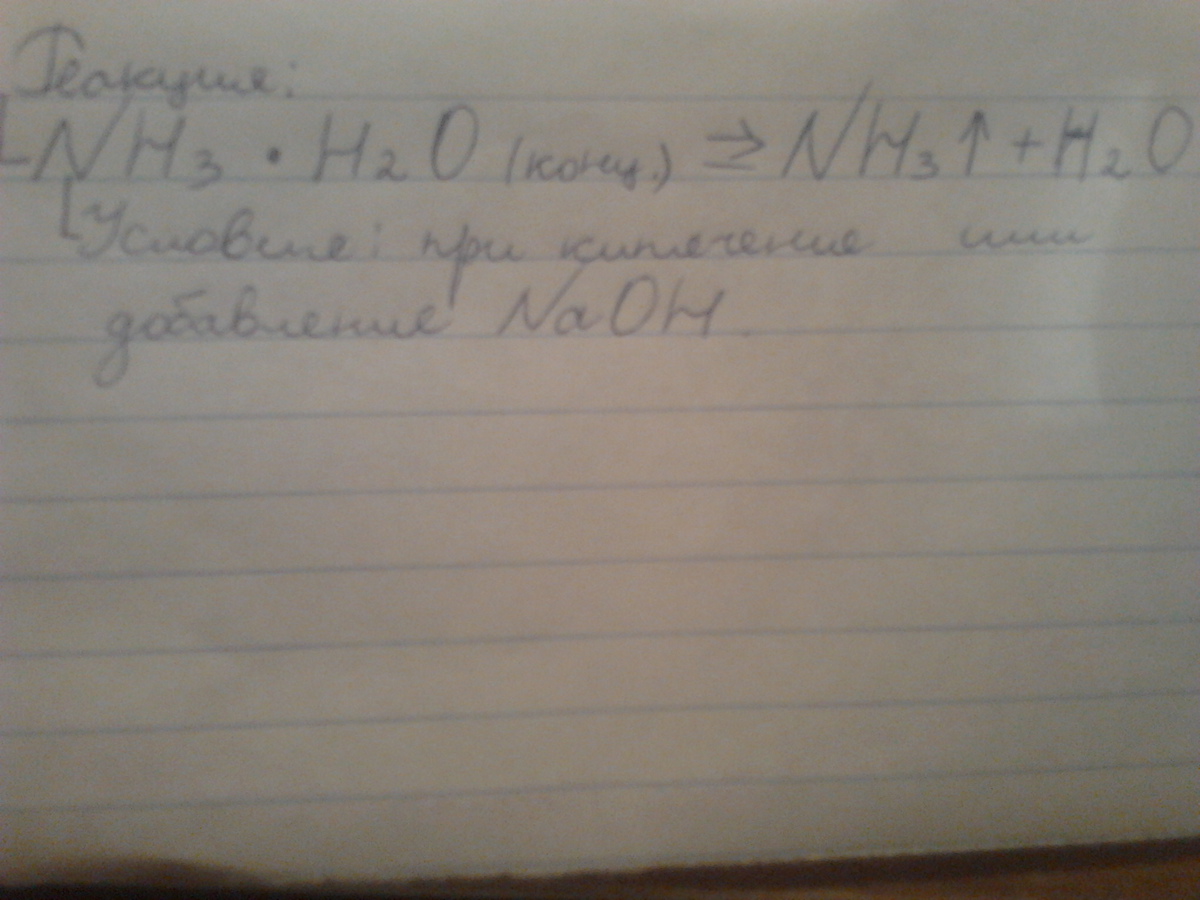 Реакция:
NH₃ · H₂O (конц.) ⇄ NH₃↑ + H₂O
Условие: при кипячение или
добавление NaOH.